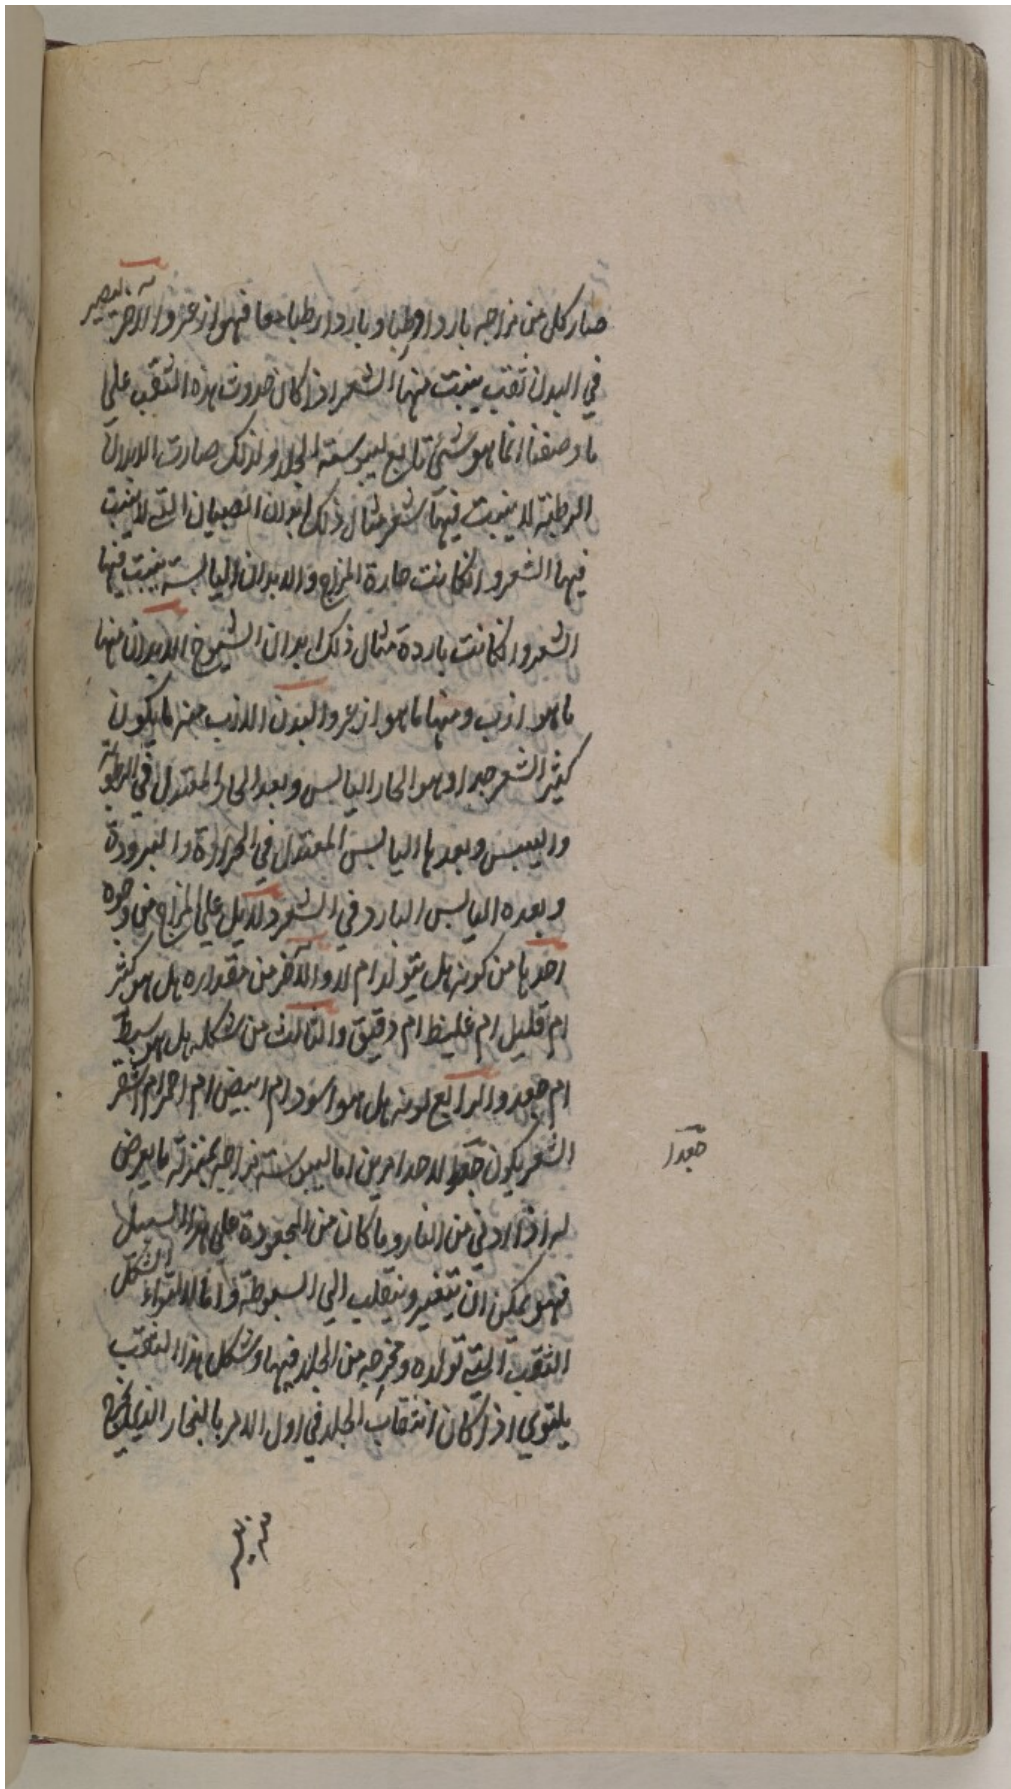 صار كل من مزاجه باردا رطبا و باردا رطبا معا فهو ازعر والآخر انه يصير
في البدن ثقب ينبت منها الشعر اذا كان حدوث هذه الثقب علي
ما وصفنا انما هو شئ تابع ليبوسة الجلد ولذلك صارت الابدان
الرطبة لا ينبت فيها شعر مثال ذلك ابدان الصبيان التي لا ينبت
فيها الشعر وان كانت حارة المزاج والابدان اليابسة ينبت فيها
الشعر وان كانت باردة مثال ذلك ابدان الشيوخ الابدان منها
ما هو ازب ومنها ما هو ازعر والبدن الازب منه ما يكون
كثير الشعر جدا وهو الحار اليابس وبعد الحار المعتدل في الرطوبة
واليبس وبعدها اليابس المعتدل في الحرارة والبرودة
وبعده اليابس البارد في الشعر دلائل علي المزاج من وجوه
احدها من كونه هل يتولد ام لا والآخر من مقداره هل هو كثير
ام قليل ام غليظ ام دقيق والثالث من شكله هل هو سبط
ام جعد والرابع لونه هل هو اسود ام ابيض ام احمر ام اشقر
الشعر يكون جعدا لاحد امرين اما ليبوسة مزاجه بمنزلة ما يعرض
جعدا
له اذا ادني من النار وما كان من الجعودة علي هذا السبيل
فهو يمكن ان يتغير وينقلب الي السبوطة واما لالتواء الشكل
الثقب التي تولده ومخرجه من الجلد فيها وشكل هذا الثقب
يلتوي اذا كان انثقاب الجلد في اول الامر بالبخار الذي يخرج